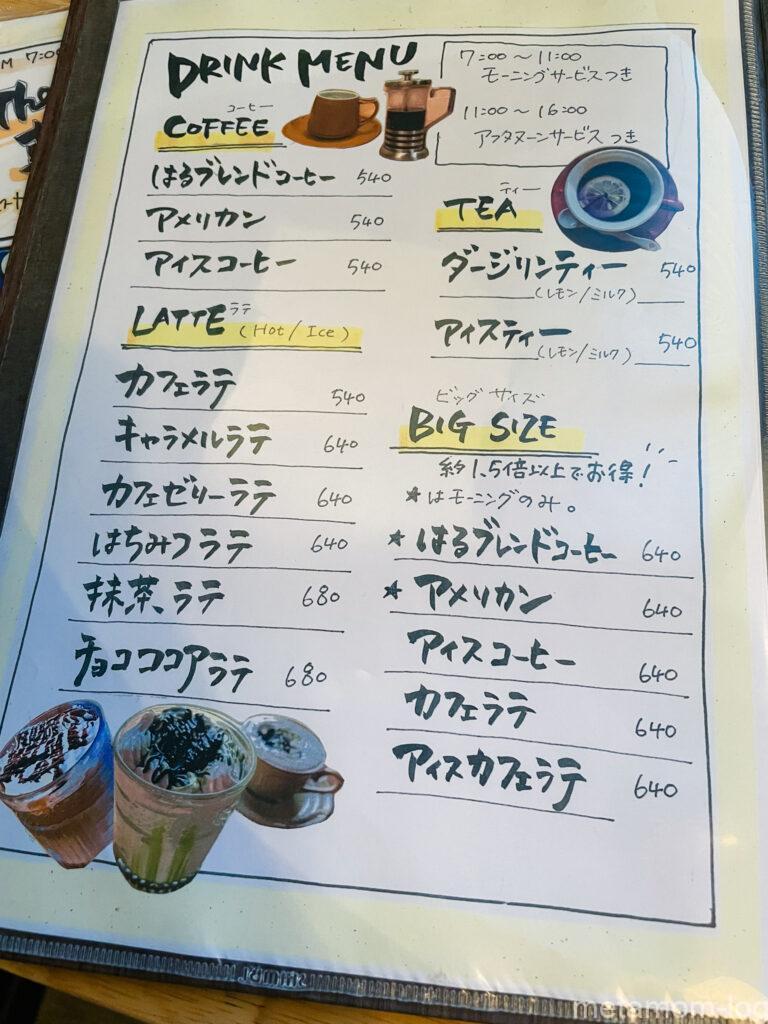 DRINK MENU
7:00〜11:00
モーニングサービスつき
11:00〜16:00
アフタヌーンサービスつき
コーヒー
COFFEE
はるブレンドコーヒー 540
アメリカン 540
アイスコーヒー 540
ラテ
LATTE (Hot/Ice)
カフェラテ 540
キャラメルラテ 640
カフェゼリーラテ 640
はちみつラテ 640
抹茶ラテ 680
チョコココアラテ 680
ティー
TEA
ダージリンティー 540
(レモン/ミルク)
アイスティー 540
(レモン/ミルク)
ビッグサイズ
BIG SIZE
約1.5倍以上でお得!
★はモーニングのみ。
★はるブレンドコーヒー 640
★アメリカン 640
アイスコーヒー 640
カフェラテ 640
アイスカフェラテ 640
metamom-log